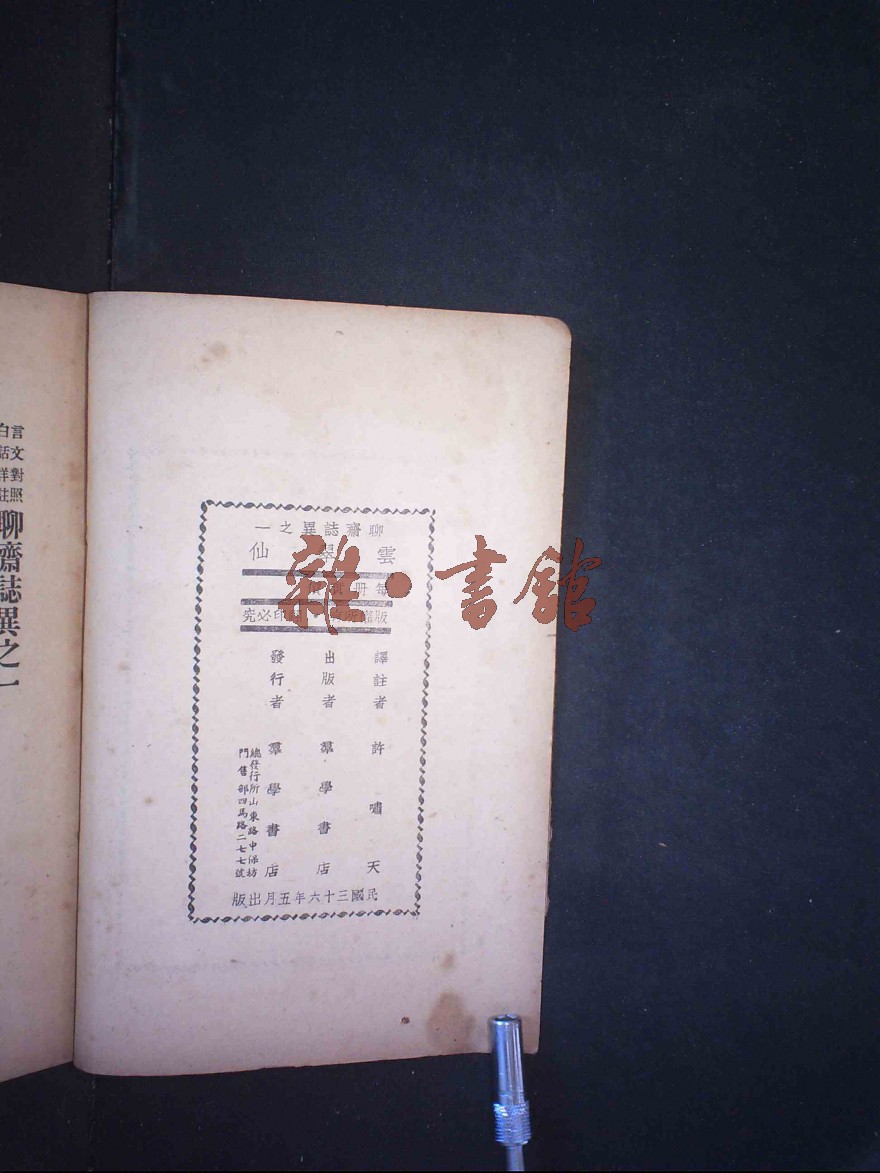 言文對照
白話詳註
聊齋誌異之一
聊齋誌異之一
雲翠仙
每冊
版權所有 翻印必究
譯註者 許嘯天
出版者 羣學書店
發行者 羣學書店
總發行所山東路中保坊
門售部四馬路二七七號
民國三十六年五月出版
雜·書館